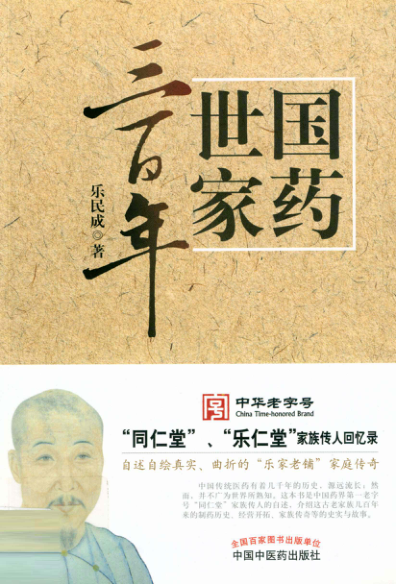 国药
世家
三百年
乐民成◎著
中华老字号
China Time-honored Brand
“同仁堂”、“乐仁堂”家族传人回忆录
自述自绘真实、曲折的“乐家老铺”家庭传奇
中国传统医药有着几千年的历史，源远流长；然
而，并不广为世界所熟知。这本书是中国药界第一老字
号“同仁堂”家族传人的自述，介绍这古老家族几百年
来的制药历史、经营开拓、家族传奇等的史实与故事。
全国百家图书出版单位
中国中医药出版社